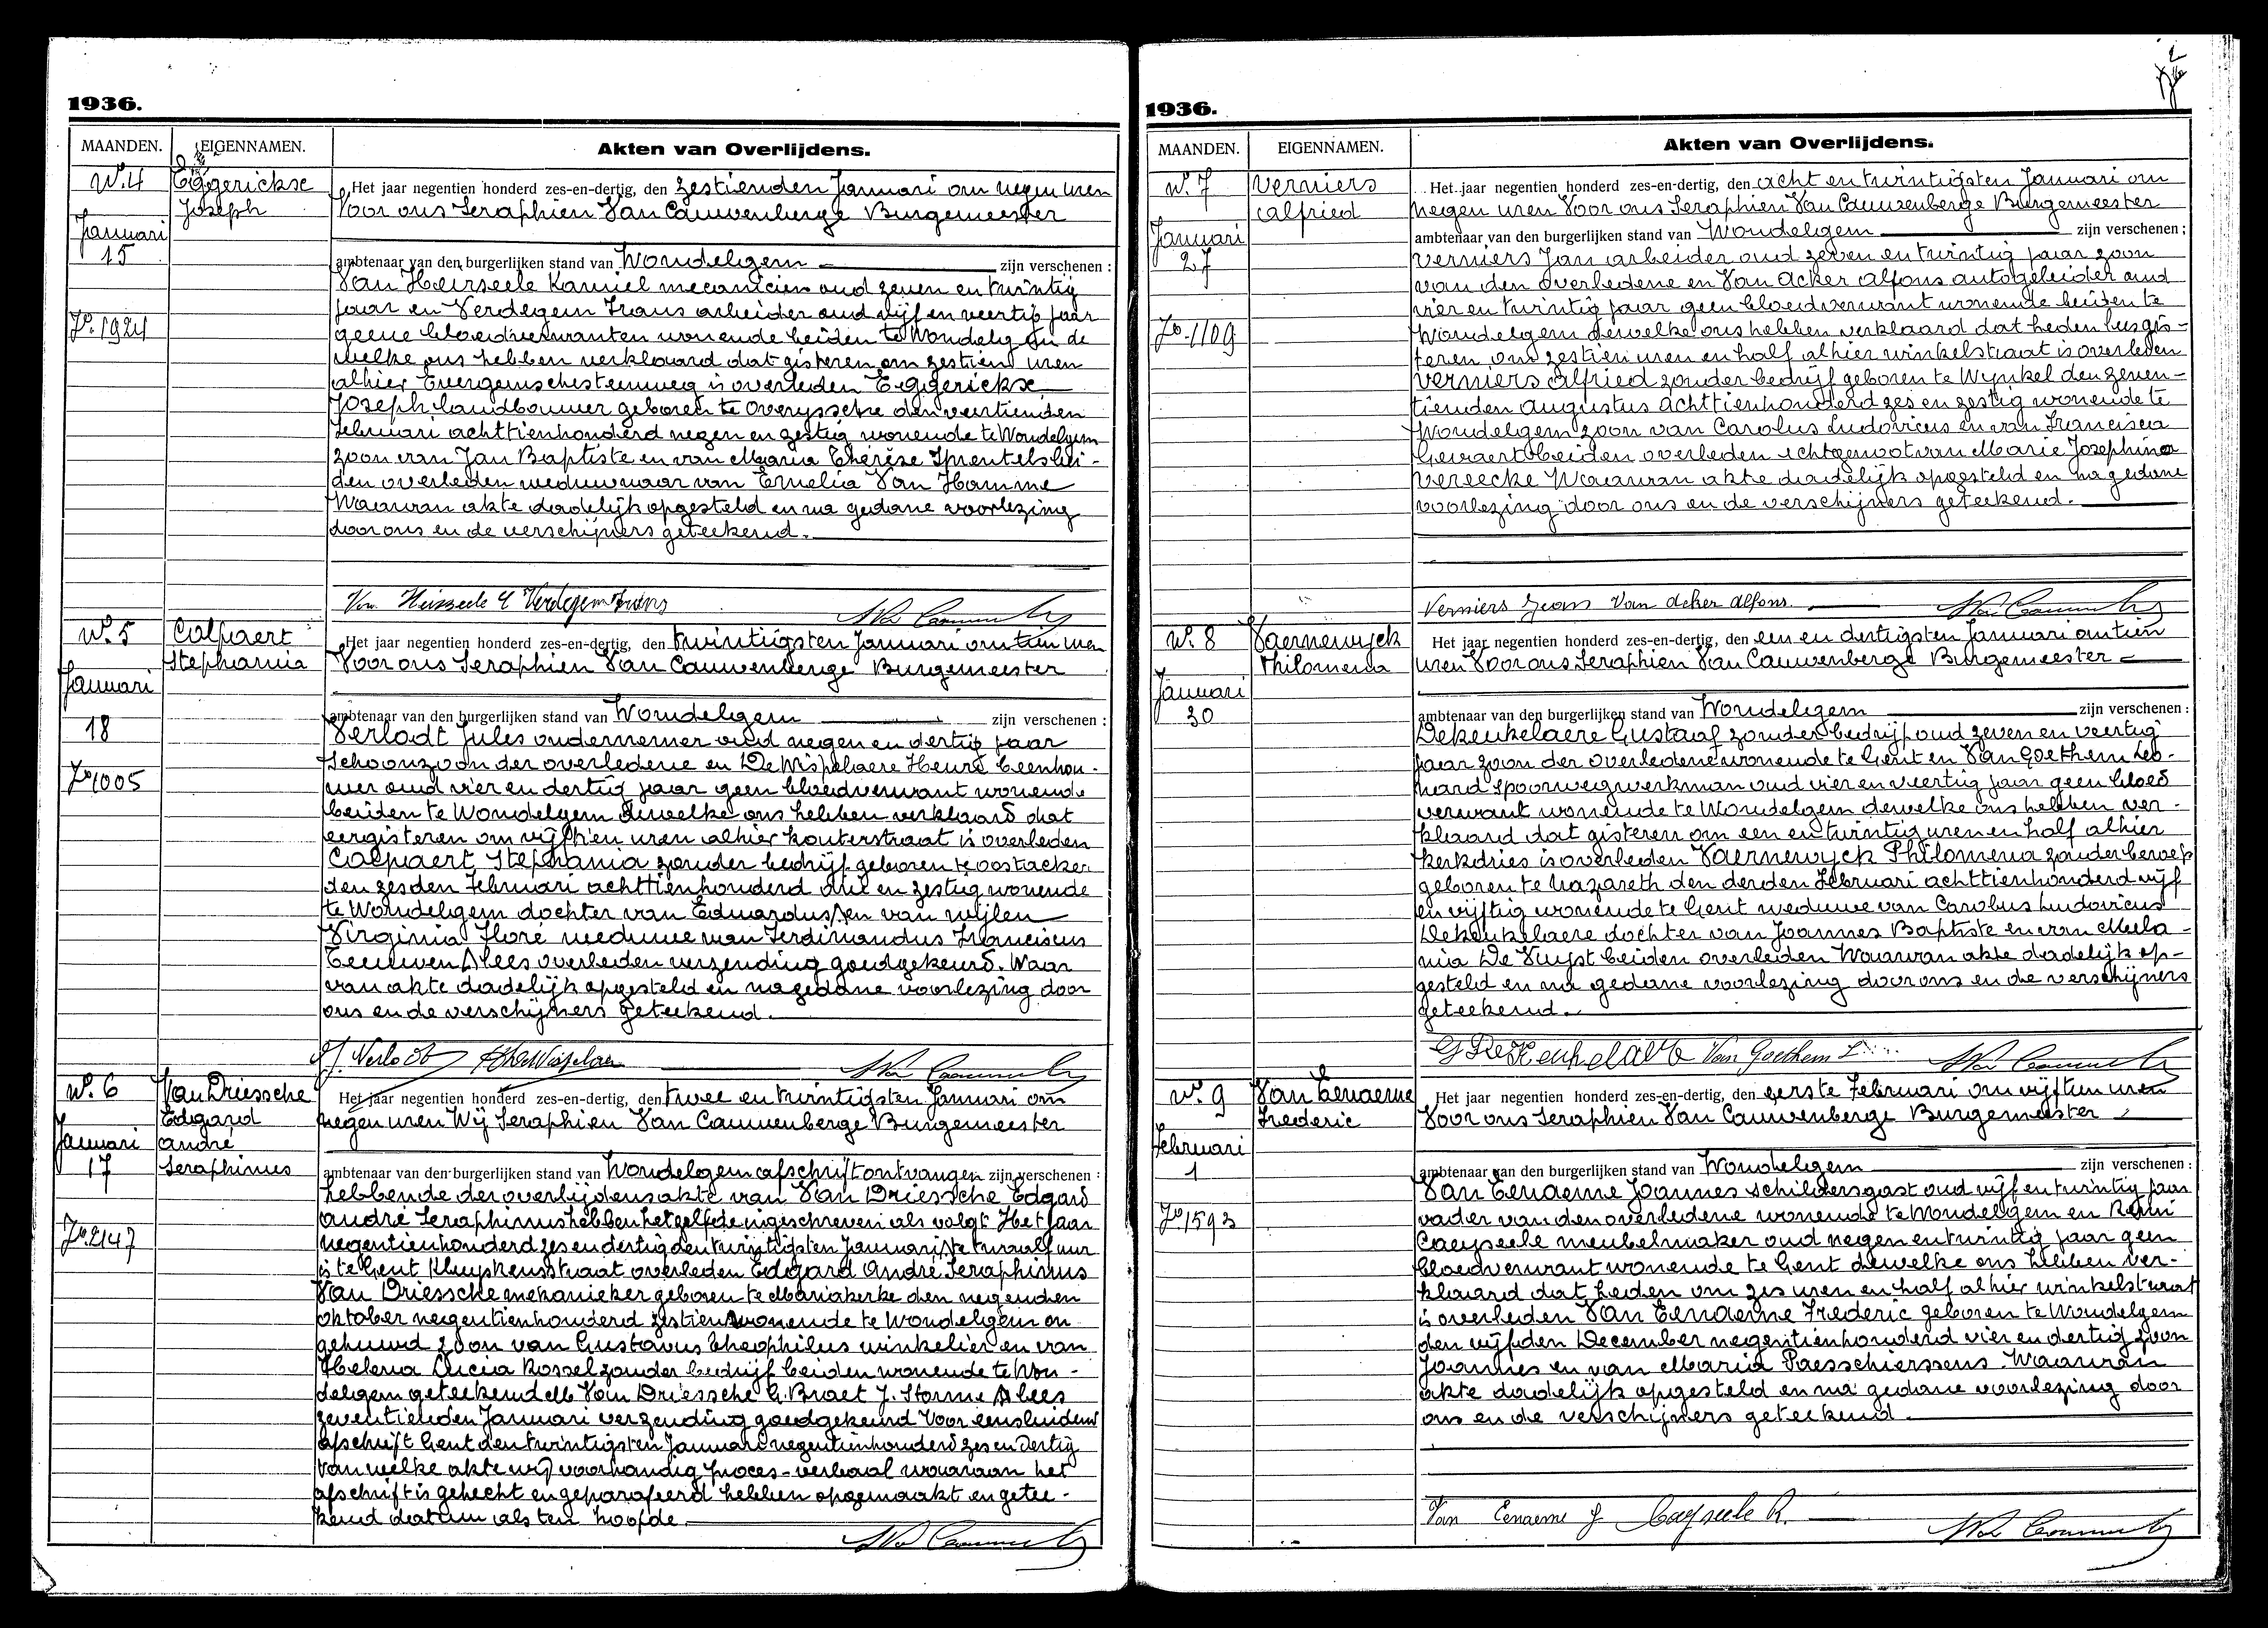 1936.
MAANDEN. EIGENNAMEN. Akten van Overlijdens.
N°. 4
Januari
15
F°. 1924
Eggerickse
Joseph
Het jaar negentien honderd zes-en-dertig, den zestienden Januari om negen uren
Voor ons Seraphien Van Cauwenberge Burgemeester
ambtenaar van den burgerlijken stand van Wondelgem zijn verschenen :
Van Heirseele Kamiel mecanicien oud zeven en twintig
jaar en Verdegem Frans arbeider oud vijf en veertig jaar
geene bloedverwanten wonende beiden te Wondelgem de
welke ons hebben verklaard dat gisteren om zestien uren
alhier Evergemschesteenweg is overleden Eggerickse
Joseph landbouwer geboren te Overyssche den veertienden
Februari achttienhonderd negen en zestig wonende te Wondelgem
zoon van Jan Baptiste en van Maria Thérèse Sprentels bei-
den overleden weduwnaar van Emelia Van Hamme
Waarvan akte dadelijk opgesteld en na gedane voorlezing
door ons en de verschijners geteekend.
Van Heirseele Verdegem Frans
N°. 5
Januari
18
F° 1005
Colpaert
Stephania
Het jaar negentien honderd zes-en-dertig, den twintigsten Januari om tien uren
Voor ons Seraphien Van Cauwenberge Burgemeester
ambtenaar van den burgerlijken stand van Wondelgem zijn verschenen :
Verlodt Jules ondernemer oud negen en dertig jaar
Schoonzoon der overledene en De Wispelaere Henré beenhou-
wer oud vier en dertig jaar geen bloedverwant wonende
beiden te Wondelgem dewelke ons hebben verklaard dat
eergisteren om vijftien uren alhier kouterstraat is overleden
Colpaert Stephania zonder bedrijf geboren te Oostacker
den zesden Februari achttienhonderd drie en zestig wonende
te Wondelgem dochter van Eduardus en van wijlen
Virginia Floré weduwe van Ferdinandus Franciscus
Teeuwen lees overleden verzending goedgekeurd. Waar
van akte dadelijk opgesteld en na gedane voorlezing door
ons en de verschijners geteekend.
J. Verlodt
N°. 6
Januari
17
F°. 2147
Van Driessche
Edgard
André
Seraphinus
Het jaar negentien honderd zes-en-dertig, den twee en twintigsten Januari om
negen uren Wij Seraphien Van Cauwenberge Burgemeester
ambtenaar van den burgerlijken stand van Wondelgem afschrift ontvangen zijn verschenen :
hebbende der overlijdensakte van Van Driessche Edgard
André Seraphinus hebben hetzelfde ingeschreven als volgt Het jaar
negentienhonderd zes en dertig den twintigsten Januari te twaalf uur
is te Gent Kluyskensstraat overleden Edgard André Seraphinus
Van Driessche mekanieker geboren te Mariakerke den negenden
oktober negentienhonderd zestien wonende te Wondelgem on
gehuwd zoon van Gustavus Theophilus winkelier en van
Helena Lucia Rossel zonder bedrijf beiden wonende te Won-
delgem geteekend M Van Driessche G. Braet J. Storme lees
zeventienden Januari verzending goedgekeurd Voor eensluidend
afschrift Gent den twintigsten Januari negentienhonderd zes en dertig
Van welke akte wij voorhandig proces-verbaal waaraan het
afschrift is gehecht en geparafeerd hebben opgemaakt en getee-
kend datum als ten hoofde.
1936.
2
MAANDEN. EIGENNAMEN. Akten van Overlijdens.
N°. 7
Januari
27
F°. 1109
Verniers
Alfried
Het jaar negentien honderd zes-en-dertig, den acht en twintigsten Januari om
negen uren Voor ons Seraphien Van Cauwenberge Burgemeester
ambtenaar van den burgerlijken stand van Wondelgem zijn verschenen ;
Verniers Jan arbeider oud zeven en twintig jaar zoon
van den overledene en Van Acker Alfons autogeleider oud
vier en twintig jaar geen bloedverwant wonende beiden te
Wondelgem dewelke ons hebben verklaard dat heden lees gis-
teren om zestien uren en half alhier winkelstraat is overleden
Verniers Alfried zonder bedrijf geboren te Wynkel den zeven-
tienden Augustus achttienhonderd zes en zestig wonende te
Wondelgem zoon van Carolus Ludovicus en van Francisca
Gevaert beiden overleden echtgenoot van Marie Josephina
Vereecke Waarvan akte dadelijk opgesteld en na gedane
voorlezing door ons en de verschijners geteekend.
Verniers Jean Van Acker Alfons.
N°. 8
Januari
30
Vaernewyck
Philomena
Het jaar negentien honderd zes-en-dertig, den een en dertigsten Januari om tien
uren Voor ons Seraphien Van Cauwenberge Burgemeester
ambtenaar van den burgerlijken stand van Wondelgem zijn verschenen :
Dekeukelaere Gustaaf zonder bedrijf oud zeven en veertig
jaar zoon der overledene wonende te Gent en Van Goethem Leo-
nard spoorwegwerkman oud vier en veertig jaar geen bloed
verwant wonende te Wondelgem dewelke ons hebben ver-
klaard dat gisteren om een en twintig uren en half alhier
kerkdries is overleden Vaernewyck Philomena zonder beroep
geboren te Nazareth den derden Februari achttienhonderd vijf
en vijftig wonende te Gent weduwe van Carolus Ludovicus
Dekeukelaere dochter van Joannes Baptiste en van Mela-
nia De Vuyst beiden overleden Waarvan akte dadelijk op-
gesteld en na gedane voorlezing door ons en de verschijners
geteekend.
G DeKeukelaere Van Goethem L
N°. 9
Februari
1
F° 1593
Van Eenaeme
Frederic
Het jaar negentien honderd zes-en-dertig, den eerste Februari om vijftien uren
Voor ons Seraphien Van Cauwenberge Burgemeester
ambtenaar van den burgerlijken stand van Wondelgem zijn verschenen :
Van Eenaeme Joannes schildersgast oud vijf en twintig jaar
vader van den overledene wonende te Wondelgem en Remi
Caeyseele meubelmaker oud negen en twintig jaar geen
bloedverwant wonende te Gent dewelke ons hebben ver-
klaard dat heden om zes uren en half alhier winkelstraat
is overleden Van Eenaeme Frederic geboren te Wondelgem
den vijfden December negentienhonderd vier en dertig zoon
Joannes en van Maria Paesschierssens Waarvan
akte dadelijk opgesteld en na gedane voorlezing door
ons en de verschijners geteekend.
Van Eenaeme J Caeyseele R.